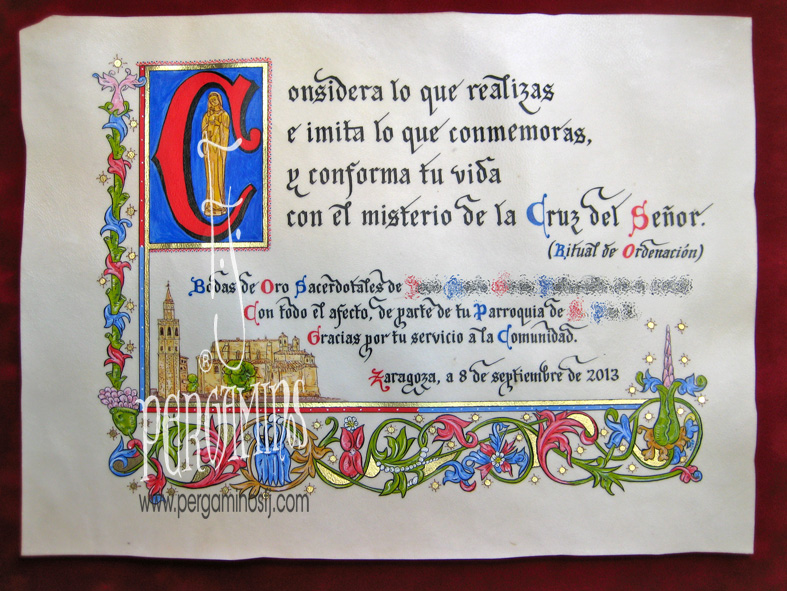 Considera lo que realizas
e imita lo que conmemoras,
y conforma tu vida
con el misterio de la Cruz del Señor.
(Ritual de Ordenación)
Bodas de Oro Sacerdotales de
Con todo el afecto, de parte de tu Parroquia de
Gracias por tu servicio a la Comunidad.
Zaragoza, a 8 de septiembre de 2013
®
PERGAMINOS
www.pergaminosfj.com